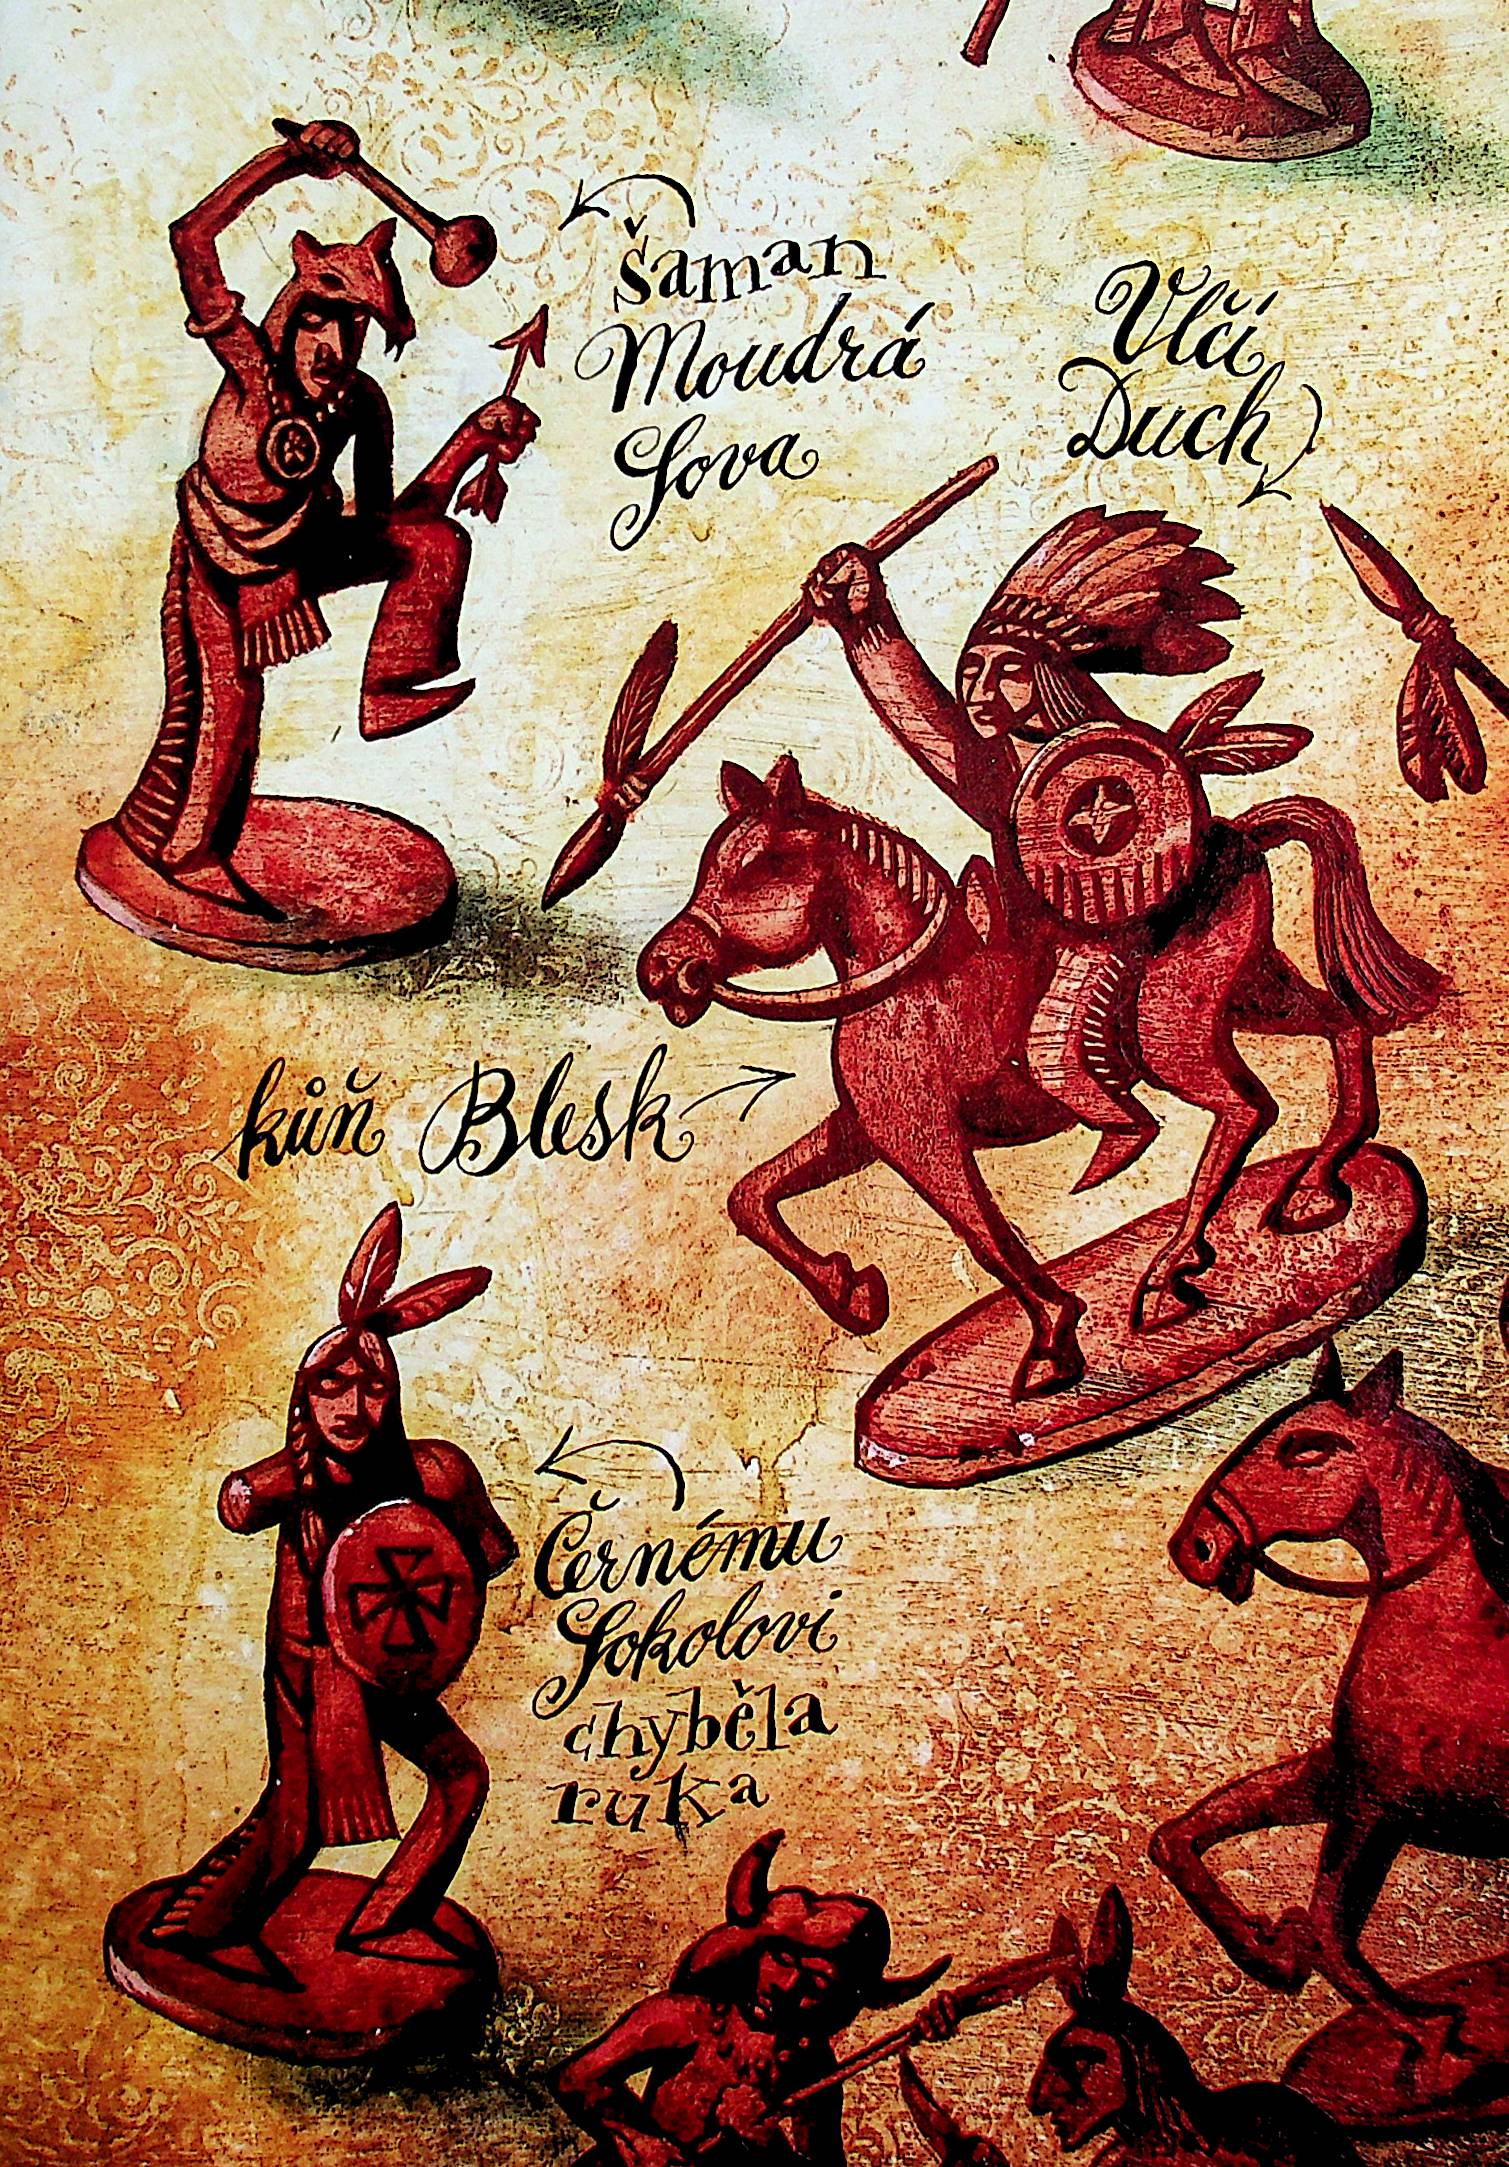 Šaman
Moudrá
Sova
Vlčí
Duch
kůň Blesk
Černému
Sokolovi
chyběla
ruka